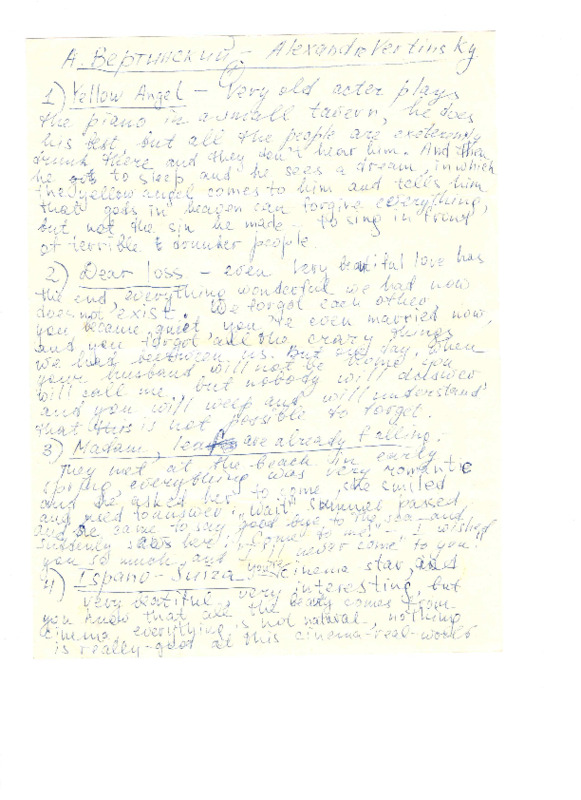 А. Вертинский - Alexandre Vertinsky
1) Yellow Angel - Very old acter plays
the piano in a small tavern, he does
his best, but all the people are
drunk there and they don't hear him. And then
he to sleep and he sees a dream, in which
the yellow angel comes to him and tells him
that gods in heaven can forgive everything,
but not the sin he made - to sing in front
of terrible drunker people.
2) Dear loss - even very love has
the end, everything wonderful we had now
does not exist. We forgot each other,
you became quiet, you're even married now,
and you forgot all the crazy things
we had between us. But one day, when
your husband will not be home you
will call me, but nobody will
and you will weep and will understand
that this is not possible to forget.
3) Madam, are already falling.
They met at the beach in early
spring, everything was very romantic
and he asked her to come, she smiled
and used to answer: "wait"
and he came to say good bye to the sea - and
suddenly her: "I come to me!" "I
you so much, and I'll never come to you!
4) Ispano-Suiza - you're cinema star,
very very interesting, but
you know that all the comes from
cinema, everything is not natural, nothing
is really-good at this cinema-real-world